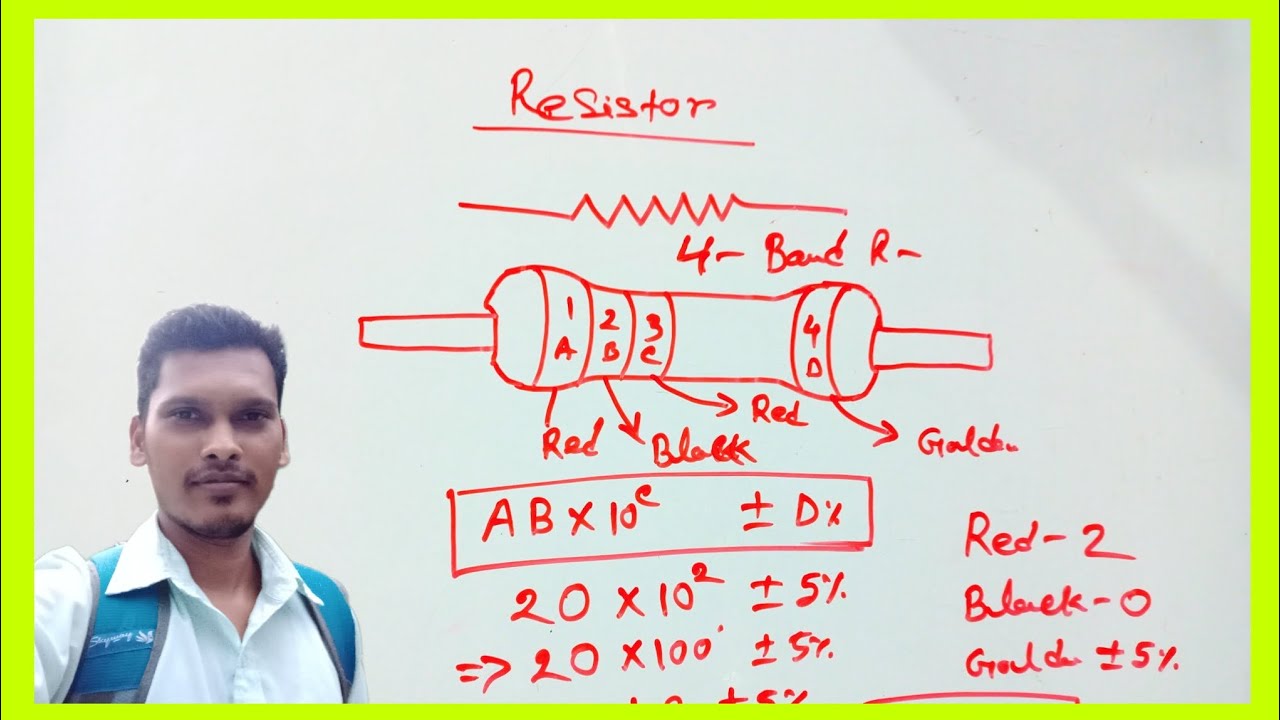 Resistor
4- Band R-
1 2 3 4
A B C D
Red Black Red Golden
AB X 10^c ± D%
20 X 10^2 ± 5%
=> 20 X 100 ± 5%
± 5%
Red - 2
Black - 0
Golden ± 5%